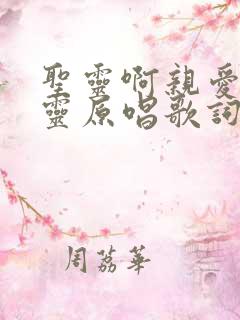 聖靈啊親愛
靈原唱歌詞
周荔華